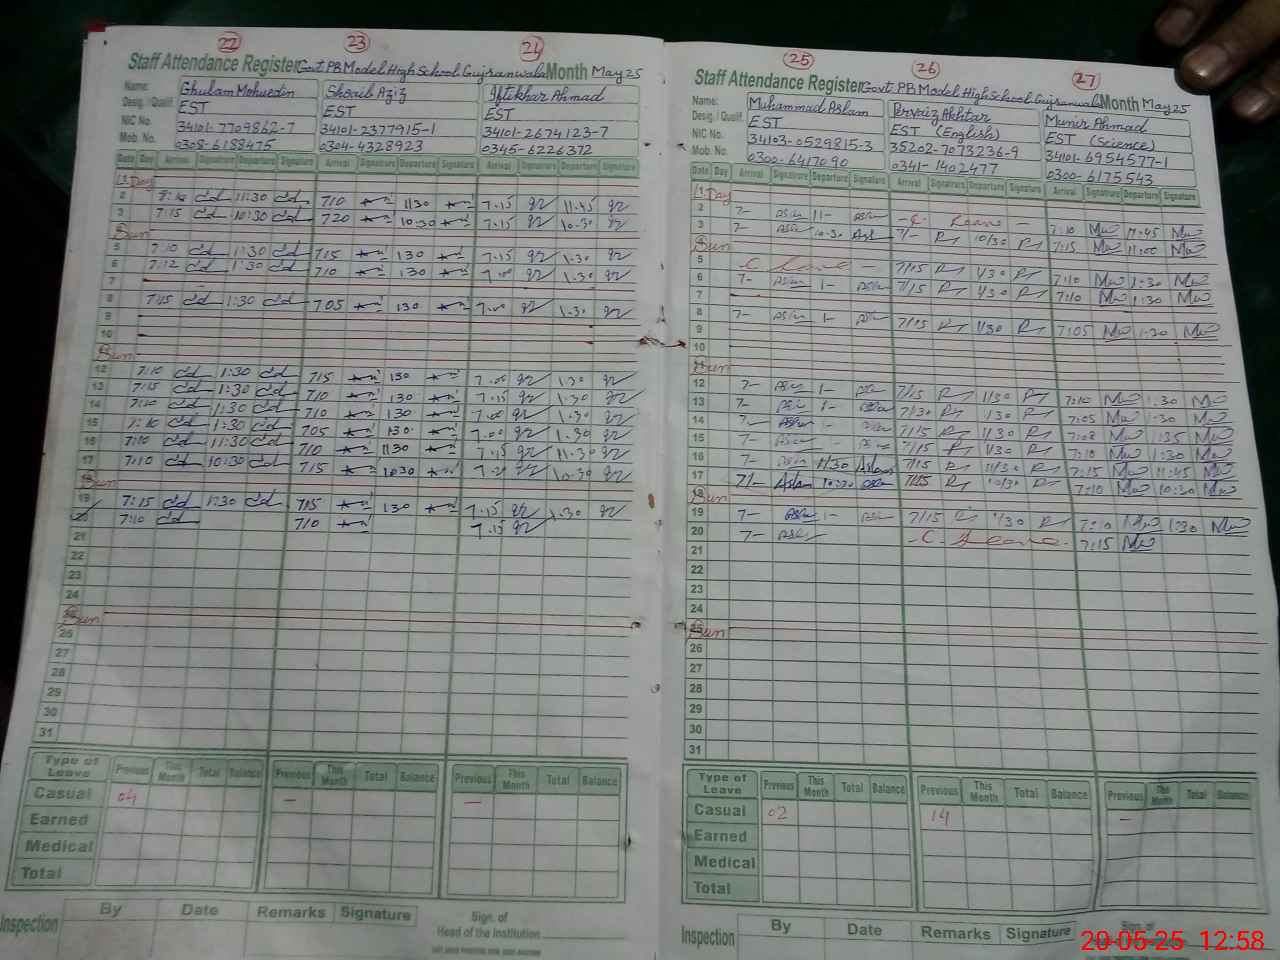 22 23 24
Staff Attendance Register Govt. PB Model High School Gujranwala Month May 25
Name: Ghulam Mohuedin Shoaib Aziz Iftikhar Ahmad
Desig. / Qualif. EST EST EST
NIC No. 34101-7709862-7 34101-2377915-1 34101-2674123-7
Mob. No. 0308-6188475 0304-4328923 0345-6226372
Date Day Arrival Signature Departure Signature Arrival Signature Departure Signature Arrival Signature Departure Signature
1 Day
2 11:30 710 1130 7.15 11.45
3 7:15 10:30 720 10:30 7.15 10.30
Sun
5 7:10 1:30 715 130 7.15 1.30
6 7:12 1:30 710 130 7.00 1.30
7
8 7:15 1:30 705 130 7.00 1.30
9
10
Sun
12 7:10 1:30 715 130 7.00 1.30
13 7:15 1:30 710 130 7.15 1.30
14 7:10 1:30 710 130 7.00 1.30
15 7:10 1:30 705 130 7.00 1.30
16 7:10 11:30 710 1130 7.15 11.30
17 7:10 10:30 715 1030 10.30
Sun
19 7:15 1:30 715 130 7.15 1.30
7:10 710 7.15
21
22
23
24
Sun
26
27
28
29
30
31
Type of Leave Previous This Month Total Balance Previous This Month Total Balance Previous This Month Total Balance
Casual 04 — —
Earned
Medical
Total
Inspection By Date Remarks Signature
Sign. of
Head of the Institution
25 26 27
Staff Attendance Register Govt. PB Model High School Gujranwala Month May 25
Name: Muhammad Aslam Pervaiz Akhtar Munir Ahmad
Desig. / Qualif. EST EST (English) EST (Science)
NIC No. 34103-0529815-3 35202-7073236-9 34101-6954577-1
Mob. No. 0300-6417090 0341-1402477 0300-6175543
Date Day Arrival Signature Departure Signature Arrival Signature Departure Signature Arrival Signature Departure Signature
1 Day
2 7- 11- - C. Leave - 7:10 11:45
3 7- 10-30 7/- 10/30 7:15 11:00
Sun
5 - C Leave - 7/15 1/30 7:10 1:30
6 7- 1- 7/15 1/30 7:10 1:30
7
8 7- 1- 7/15 1/30 7:05 1:30
9
10
Sun
12 7- 1- 7/15 1/30 7:10 1:30
13 7- 1- 7/30 1/30 7:05 1:30
14 7- 1- 7/15 1/30 7:08 1:35
15 7- - 7/15 1/30 7:10 1:30
16 7- 11/30 Aslam 7/15 11/30 7:15 11:45
17 7/- Aslam 10:30 Aslam 7/15 10/30 7:10 10:30
Sun
19 7- 1- 7/15 1/30 7:10 1:30
20 7- - C. Leave. 7:15
21
22
23
24
25 Sun
26
27
28
29
30
31
Type of Leave Previous This Month Total Balance Previous This Month Total Balance Previous This Month Total Balance
Casual 02 14 —
Earned
Medical
Total
Inspection By Date Remarks Signature
Sign. of
20-05-25 12:58